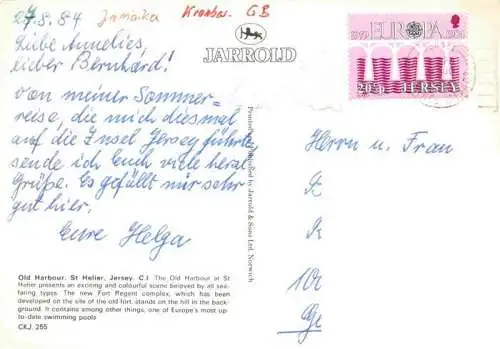 27.8.84 Jamaika
GB
JARROLD
1959 EUROPA 1984
20p JERSEY
Liebe Annelies,
lieber Bernhard!
Von meiner Sommer=
reise, die mich diesmal
auf die Insel Jersey führte
sende ich Euch viele herzl.
Grüße. Es gefällt mir sehr
gut hier.
Eure Helga
Printed and Published by Jarrold & Sons Ltd, Norwich
Herrn u. Frau
Old Harbour. St Helier, Jersey. C.I. The Old Harbour at St
Helier presents an exciting and colourful scene beloved by all sea-
faring types. The new Fort Regent complex, which has been
developed on the site of the old fort, stands on the hill in the back-
ground. It contains among other things, one of Europe's most up
to-date swimming pools
CKJ. 255